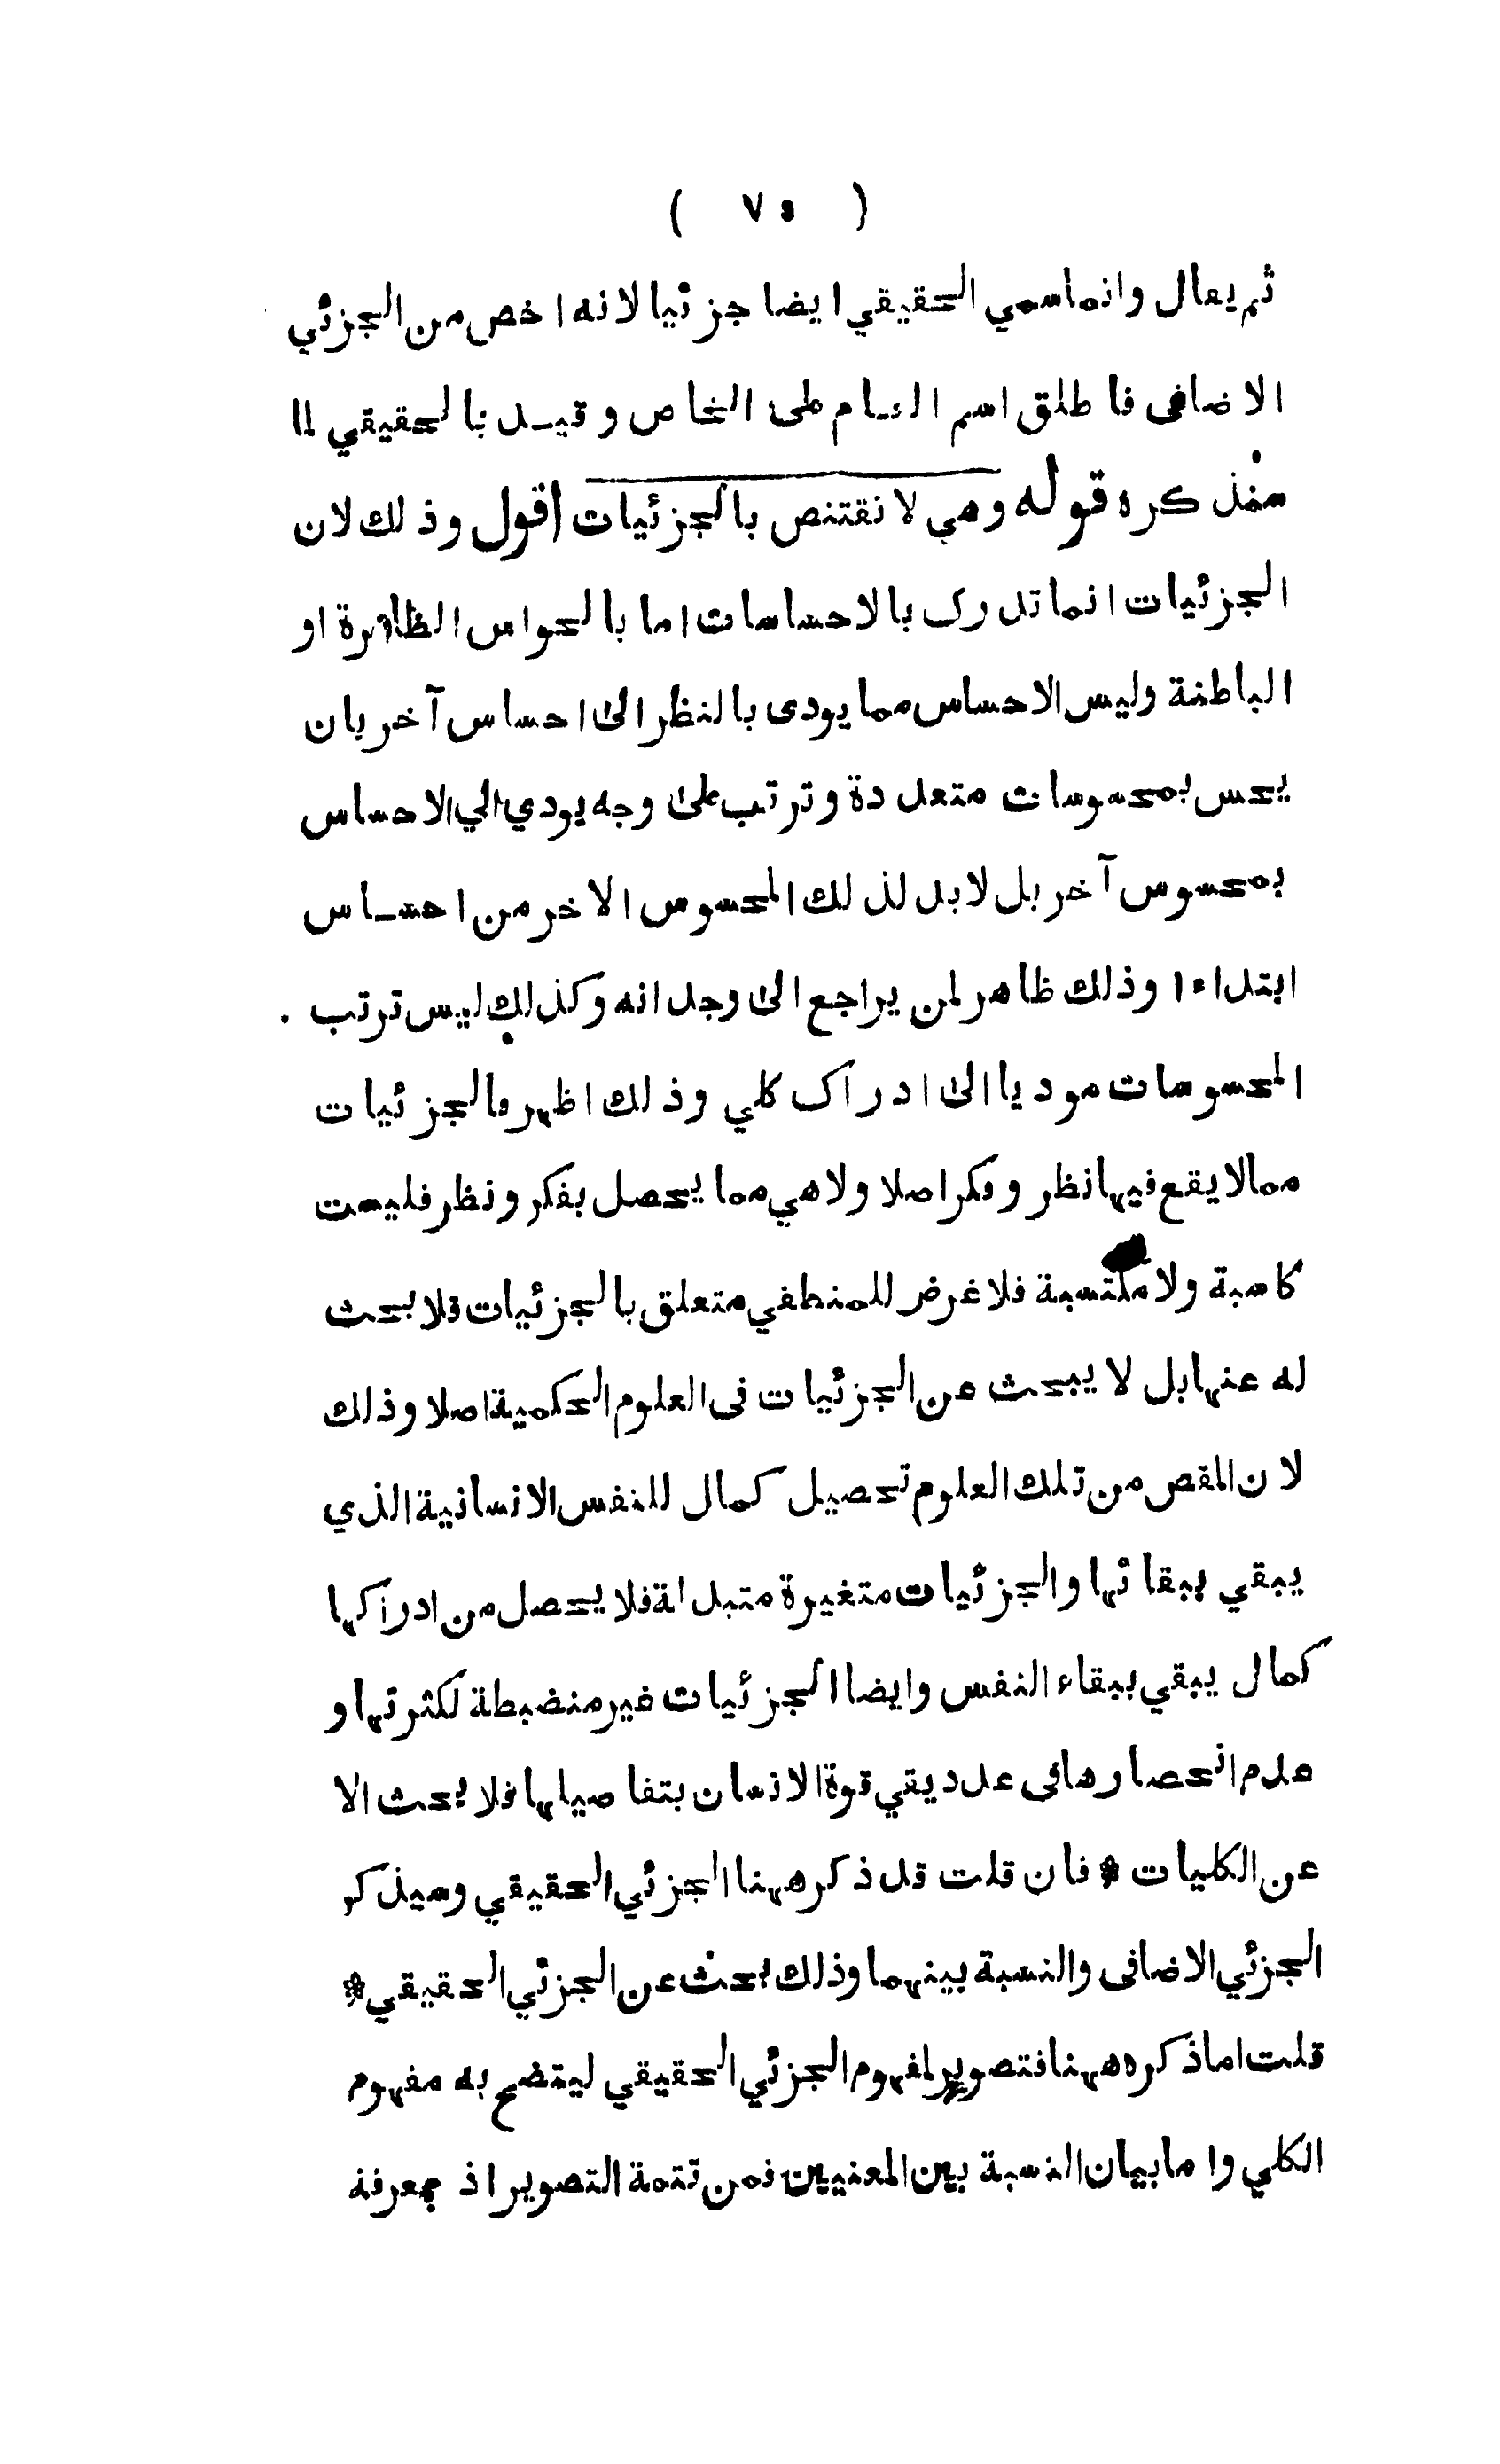 ( ٧٥ )
ثم يقال وانما سمي الحقيقي ايضا جزئيا لانه اخص من الجزئي
الاضافى فاطلق اسم العام على الخاص وقيد بالحقيقي لما
سنذكره قوله وهي لا تقتنص بالجزئيات اقول وذلك لان
الجزئيات انما تدرك بالاحساسات اما بالحواس الظاهرة او
الباطنة وليس الاحساس مما يودى بالنظر الى احساس آخر بان
يحس بمحسوسات متعددة وترتب على وجه يودي الي الاحساس
بمحسوس آخر بل لابد لذلك المحسوس الاخر من احساس
ابتداءا وذلك ظاهر لمن يراجع الى وجدانه وكذلك ليس ترتب
المحسوسات موديا الى ادراك كلي وذلك اظهر فالجزئيات
ممالا يقع فيها نظر وفكر اصلا ولا هي مما يحصل بفكر ونظر فليست
كاسبة ولا مكتسبة فلا غرض للمنطقي متعلق بالجزئيات فلا بحث
له عنها بل لا يبحث عن الجزئيات فى العلوم الحكمية اصلا وذلك
لان المقص من تلك العلوم تحصيل كمال للنفس الانسانية الذي
يبقي ببقائها والجزئيات متغيرة متبدلة فلا يحصل من ادراكها
كمال يبقي ببقاء النفس وايضا الجزئيات غير منضبطة لكثرتها و
عدم انحصارها فى عدد يفي قوة الانسان بتفاصيلها فلا بحث الا
عن الكليات * فان قلت قد ذكر ههنا الجزئي الحقيقي وسيذكر
الجزئي الاضافى والنسبة بينهما وذلك بحث عن الجزئي الحقيقي *
قلت اما ذكره ههنا فتصوير لمفهوم الجزئي الحقيقي ليتضح به مفهوم
الكلي واما بيان النسبة بين المعنيين فمن تتمة التصوير اذ بمعرفة